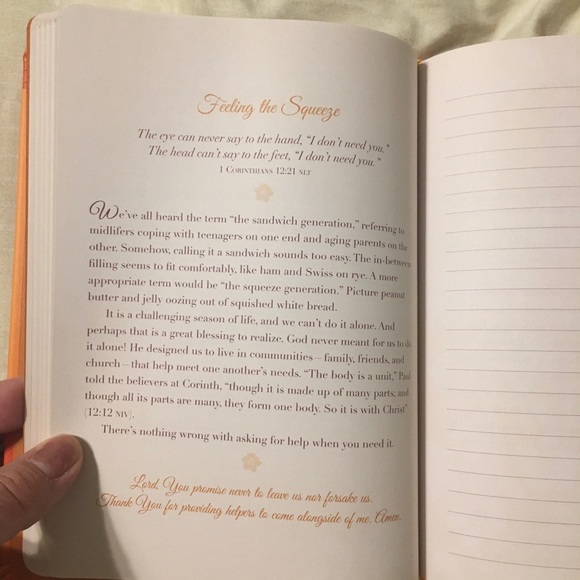 Feeling the Squeeze
The eye can never say to the hand, "I don't need you."
The head can't say to the feet, "I don't need you."
1 Corinthians 12:21 NLT
We've all heard the term "the sandwich generation," referring to
midlifers coping with teenagers on one end and aging parents on the
other. Somehow, calling it a sandwich sounds too easy. The in-between
filling seems to fit comfortably, like ham and Swiss on rye. A more
appropriate term would be "the squeeze generation." Picture peanut
butter and jelly oozing out of squished white bread.
It is a challenging season of life, and we can't do it alone. And
perhaps that is a great blessing to realize. God never meant for us to do
it alone! He designed us to live in communities—family, friends, and
church—that help meet one another's needs. "The body is a unit," Paul
told the believers at Corinth, "though it is made up of many parts; and
though all its parts are many, they form one body. So it is with Christ"
(12:12 NIV).
There's nothing wrong with asking for help when you need it.
Lord, You promise never to leave us nor forsake us.
Thank You for providing helpers to come alongside of me. Amen.